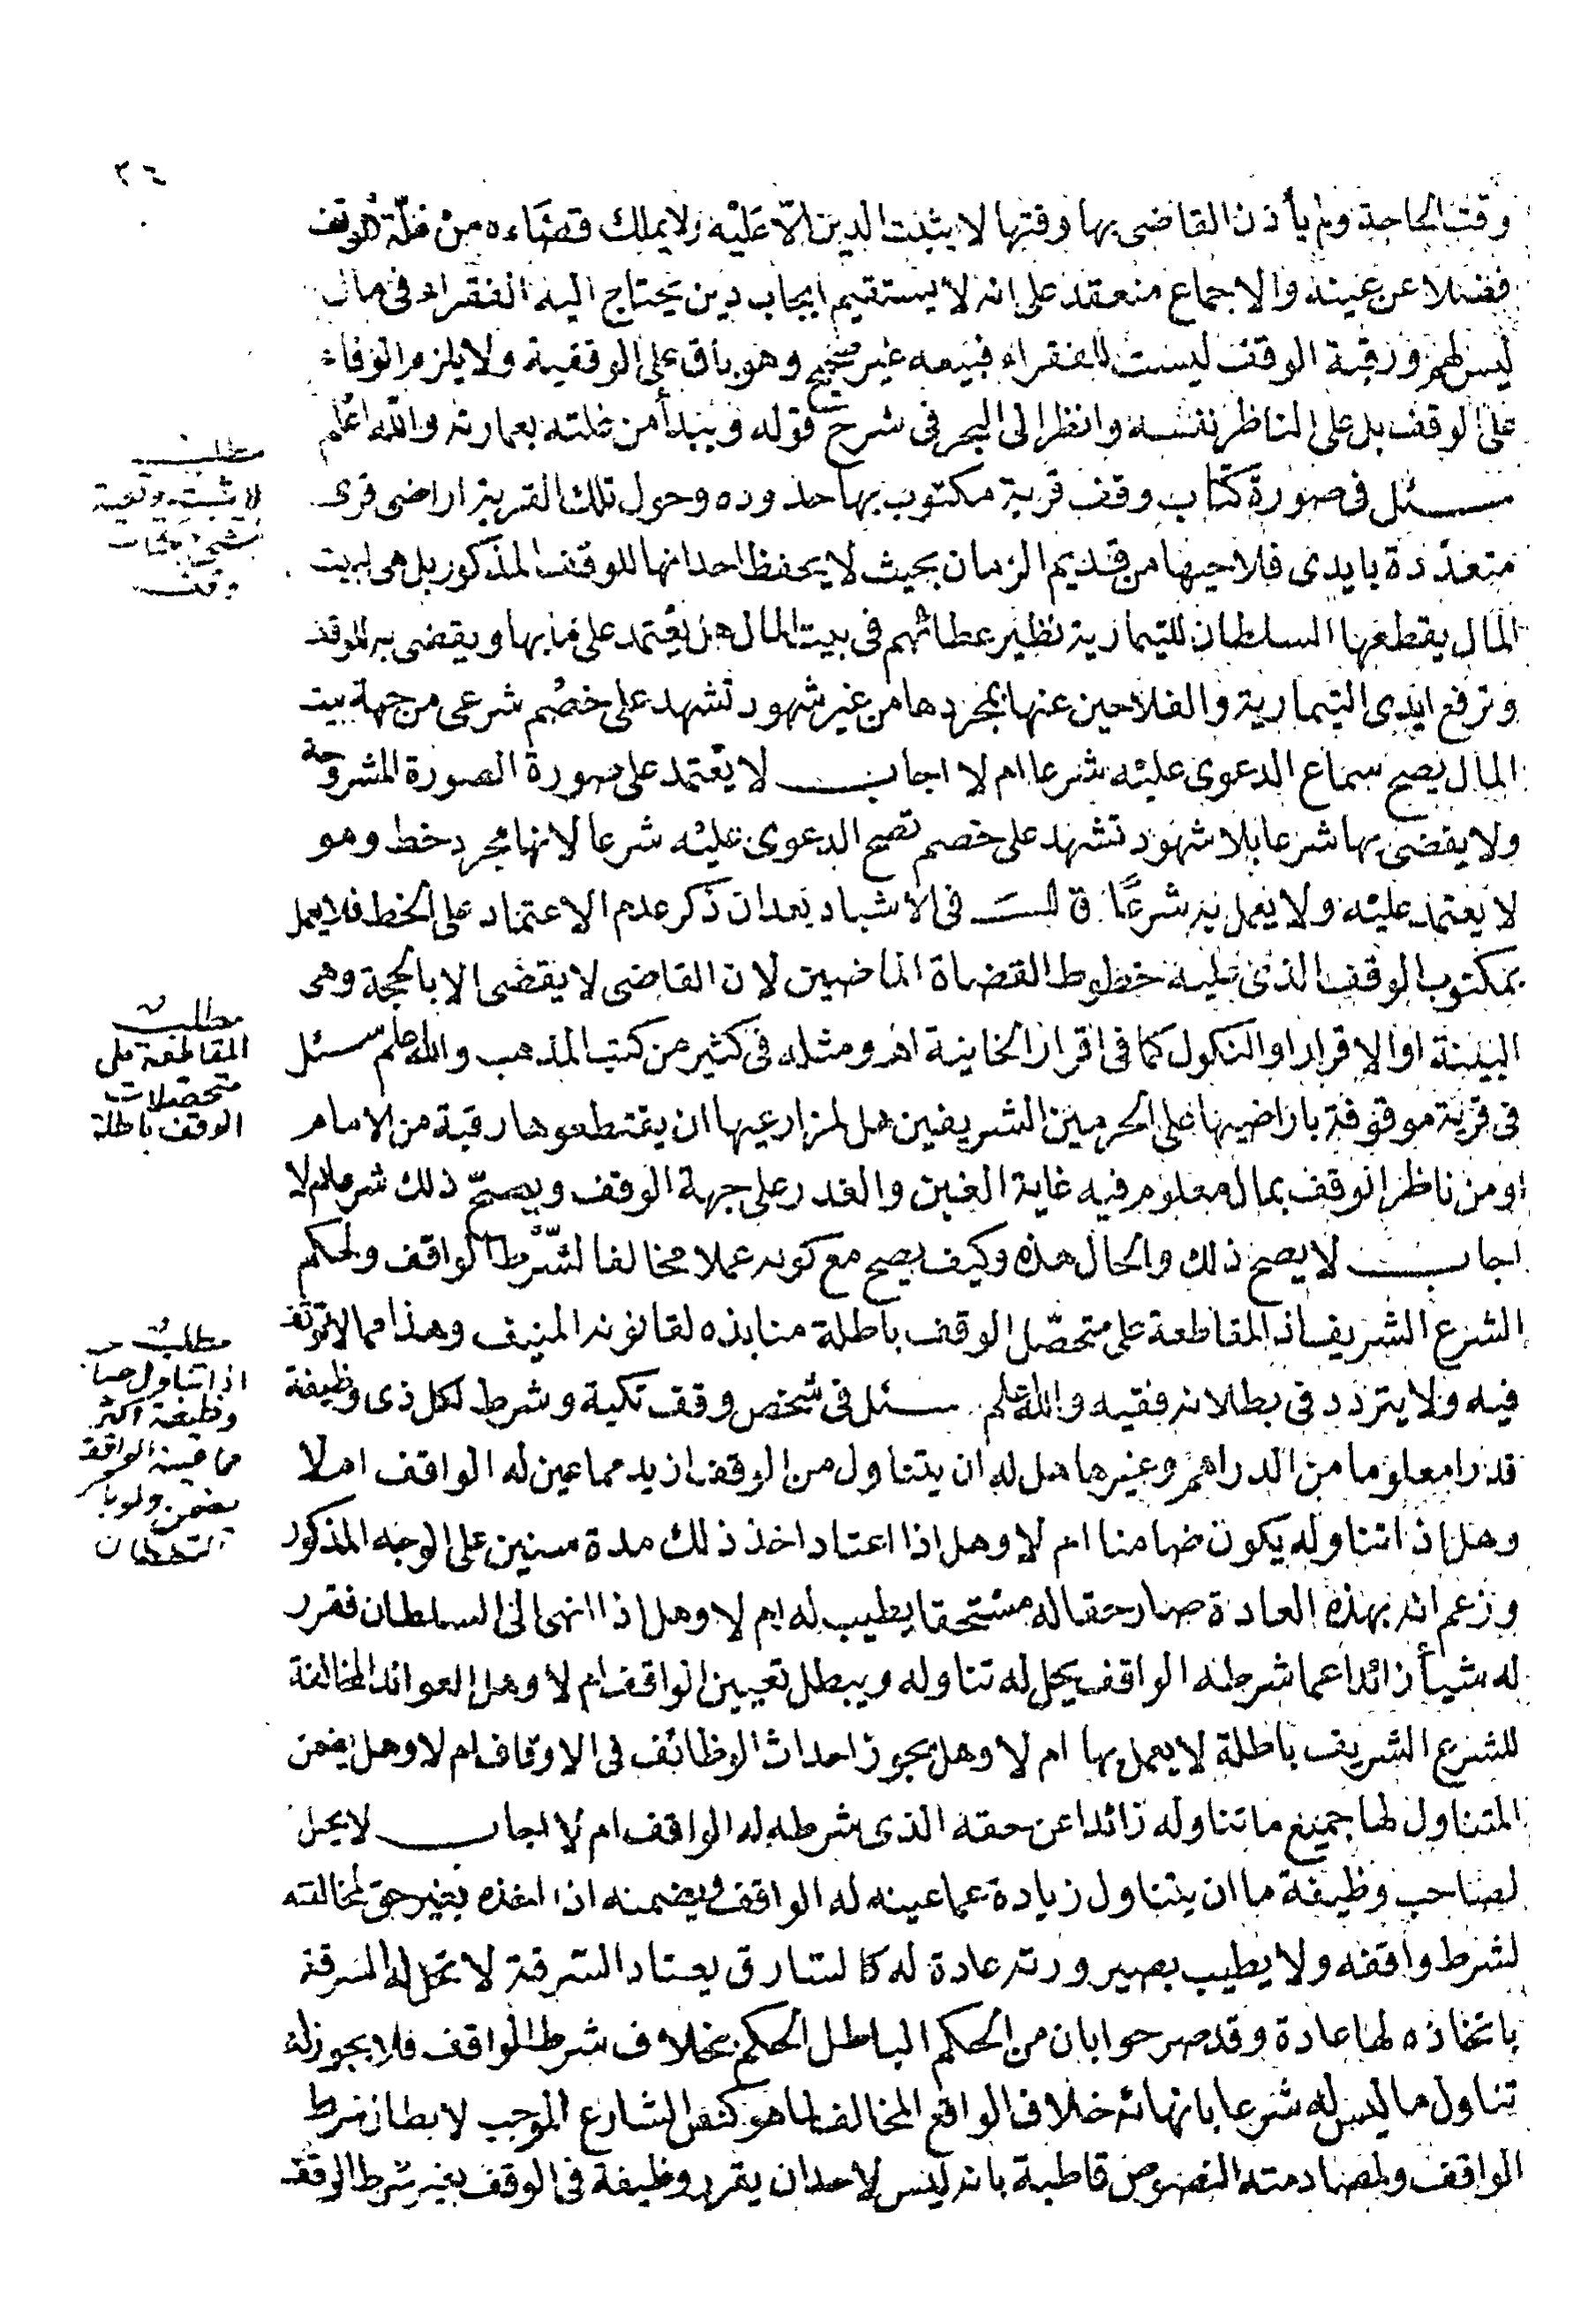 ٢٤
وقت الحاجة ولم يأذن القاضى بها وقتها لا يثبت الدين الّا عَلَيْه ولا يملك قضَاءه منْ غلّة الوقف
فضلا عن عينه والاجماع منعقد على انه لا يستقيم ايجاب دين يحتاج اليه الفقراء فى مال
ليس لهم ورقبة الوقف ليست للفقراء فبيعه غير صحيح وهو باق على الوقفية ولا يلزم الوفاء
على الوقف بل على الناظر نفسه وانظر الى البحر فى شرح قوله ويبدأ من غلته بعمارته والله اعلم
مطلب
لا تثبت وقفية
شئ بكتاب
وقف
سئل فى صورة كتاب وقف قرية مكتوب بها حدوده وحول تلك القرية اراضى قرى
متعدّدة بايدى فلاحيها من قديم الزمان بحيث لا يحفظ احد انها للوقف المذكور بل هى لبيت
المال يقطعها السلطان للتيمارية نظير عطائهم فى بيت المال هل يعتمد على ما بها ويقضى به للوقف
وترفع ايدى التيمارية والفلاحين عنها بمجردها من غير شهود تشهد على خصم شرعى من جهة بيت
المال يصح سماع الدعوى عليه شرعا ام لا اجاب لا يعتمد على صورة الصورة المشروحة
ولا يقضى بها شرعا بلا شهود تشهد على خصم تصح الدعوى عليه شرعا لانها مجرد خط وهو
لا يعتمد عليه ولا يعمل به شرعًا قال فى الاشباه بعد ان ذكر عدم الاعتماد على الخط فلا يعمل
بمكتوب الوقف الذى عليه خطوط القضاة الماضيين لان القاضى لا يقضى الا بالحجة وهى
البينة او الاقرار او النكول كما فى اقرار الخانية اهـ ومثله فى كثير من كتب المذهب والله اعلم سئل
مطلب
المقاطعة على
متحصلات
الوقف باطلة
فى قرية موقوفة باراضيها على الحرمين الشريفين هل لمزارعيها ان يقتطعوها رقبة من الامام
او من ناظر الوقف بمال معلوم فيه غاية الغبن والغدر على جهة الوقف ويصحّ ذلك شرعا ام لا
اجاب لا يصح ذلك والحال هذه وكيف يصح مع كونه عملا مخالفا لشرط الواقف ولحكم
الشرع الشريف اذ المقاطعة على متحصّل الوقف باطلة منابذه لقانونه المنيف وهذا مما لا توقف
مطلب
اذا تناول صاحب
وظيفة اكثر
مما عينه الواقف
يضمن ولو بامر
السلطان
فيه ولا يتردد فى بطلانه فقيه والله اعلم سئل فى شخص وقف تكية وشرط لكل ذى وظيفة
قدرا معلوما من الدراهم وغيرها هل له ان يتناول من الوقف ازيد مما عين له الواقف ام لا
وهل اذا تناوله يكون ضامنا ام لا وهل اذا اعتاد اخذ ذلك مدة سنين على الوجه المذكور
وزعم انه بهذه العادة صار حقا له مستحقا يطيب له ام لا وهل اذا انهى الى السلطان فقرر
له شيأ زائدا عما شرطه الواقف يحل له تناوله ويبطل تعيين الواقف ام لا وهل العوائد المخالفة
للشرع الشريف باطلة لا يعمل بها ام لا وهل يجوز احداث الوظائف فى الاوقاف ام لا وهل يضمن
المتناول لها جميع ما تناوله زائدا عن حقه الذى شرطه له الواقف ام لا اجاب لا يحل
لصاحب وظيفة ما ان يتناول زيادة عما عينه له الواقف ويضمنه اذا اخذه بغير حق لمخالفته
لشرط واقفه ولا يطيب بصيرورته عادة له كالسارق يعتاد السرقة لا تحل له السرقة
باتخاذه لها عادة وقد صرحوا بان من الحكم الباطل الحكم بخلاف شرط الواقف فلا يجوز له
تناول ما ليس له شرعا بانهائه خلاف الواقع المخالف لما هو كنص الشارع الموجب لابطال شرط
الواقف ولمصادمته النصوص قاطبة بانه ليس لاحد ان يقرر وظيفة فى الوقف بغير شرط الواقف